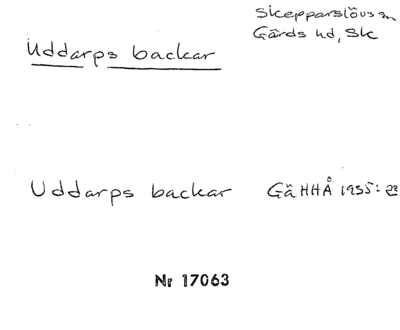 Skepparslövs sn
Gärds hd, Sk
Uddarps backar
Uddarps backar GäHHÅ 1955:
Nr 17063